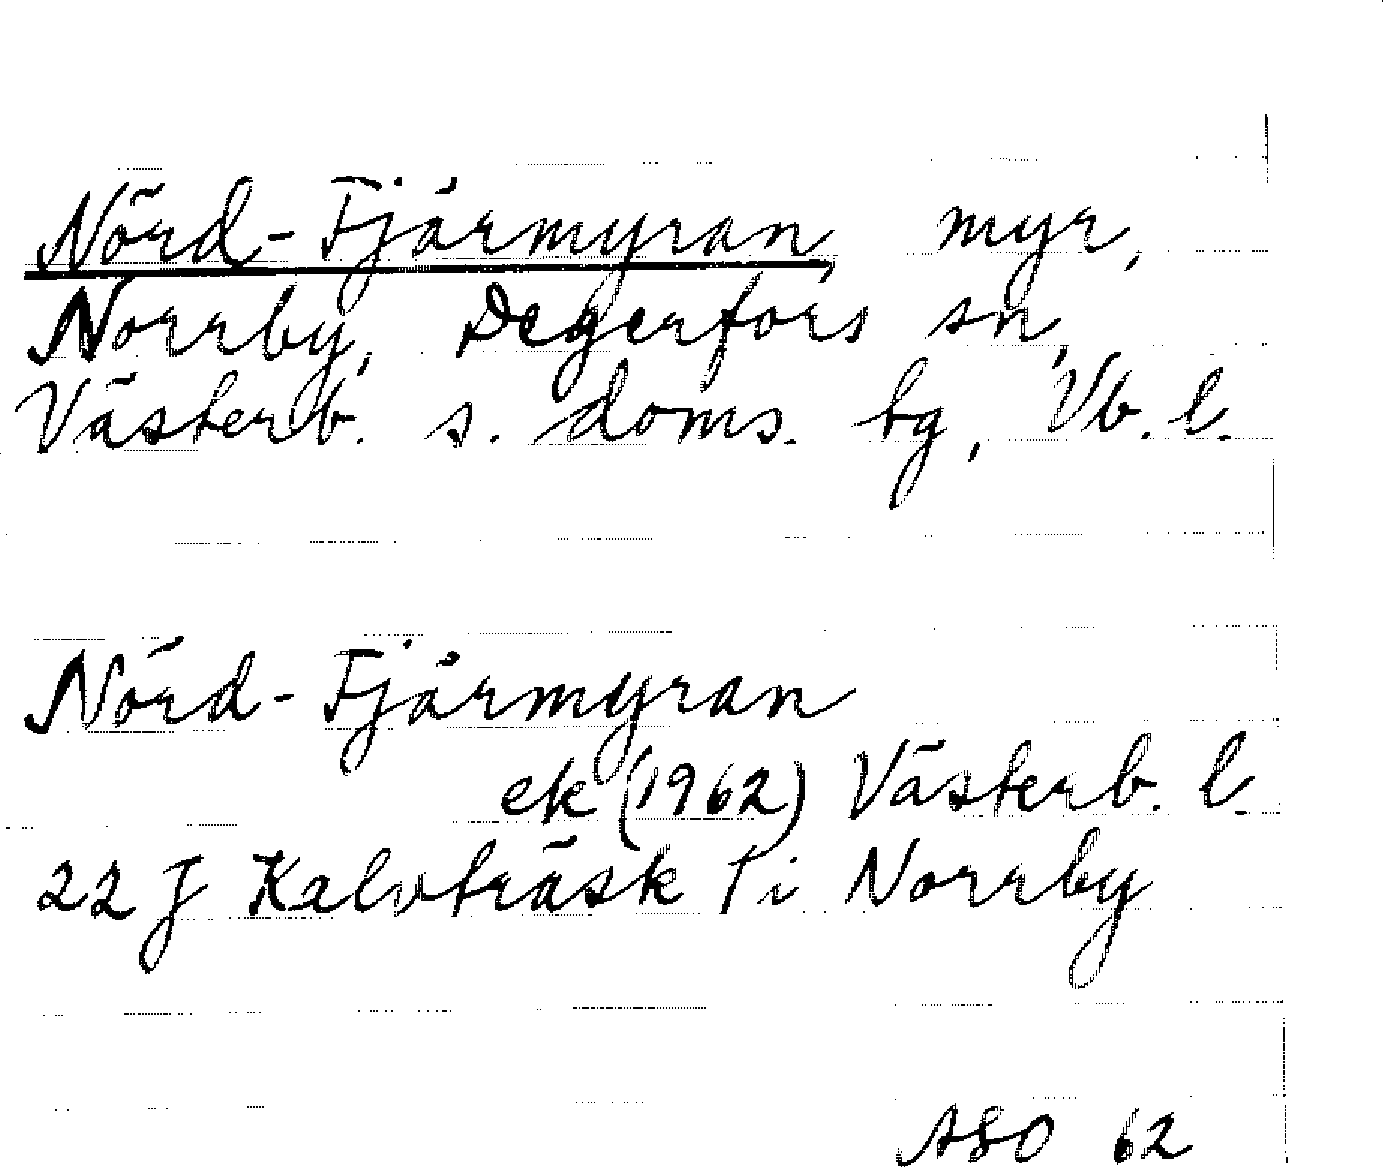 Nörd-Fjärmyran, myr,
Norrby, Degerfors sn,
Västerb. s. doms. tg, Vb. l.
Nörd-Fjärmyran
ek (1962) Västerb. l.
22 J Kalvträsk T i Norrby
ASO 62